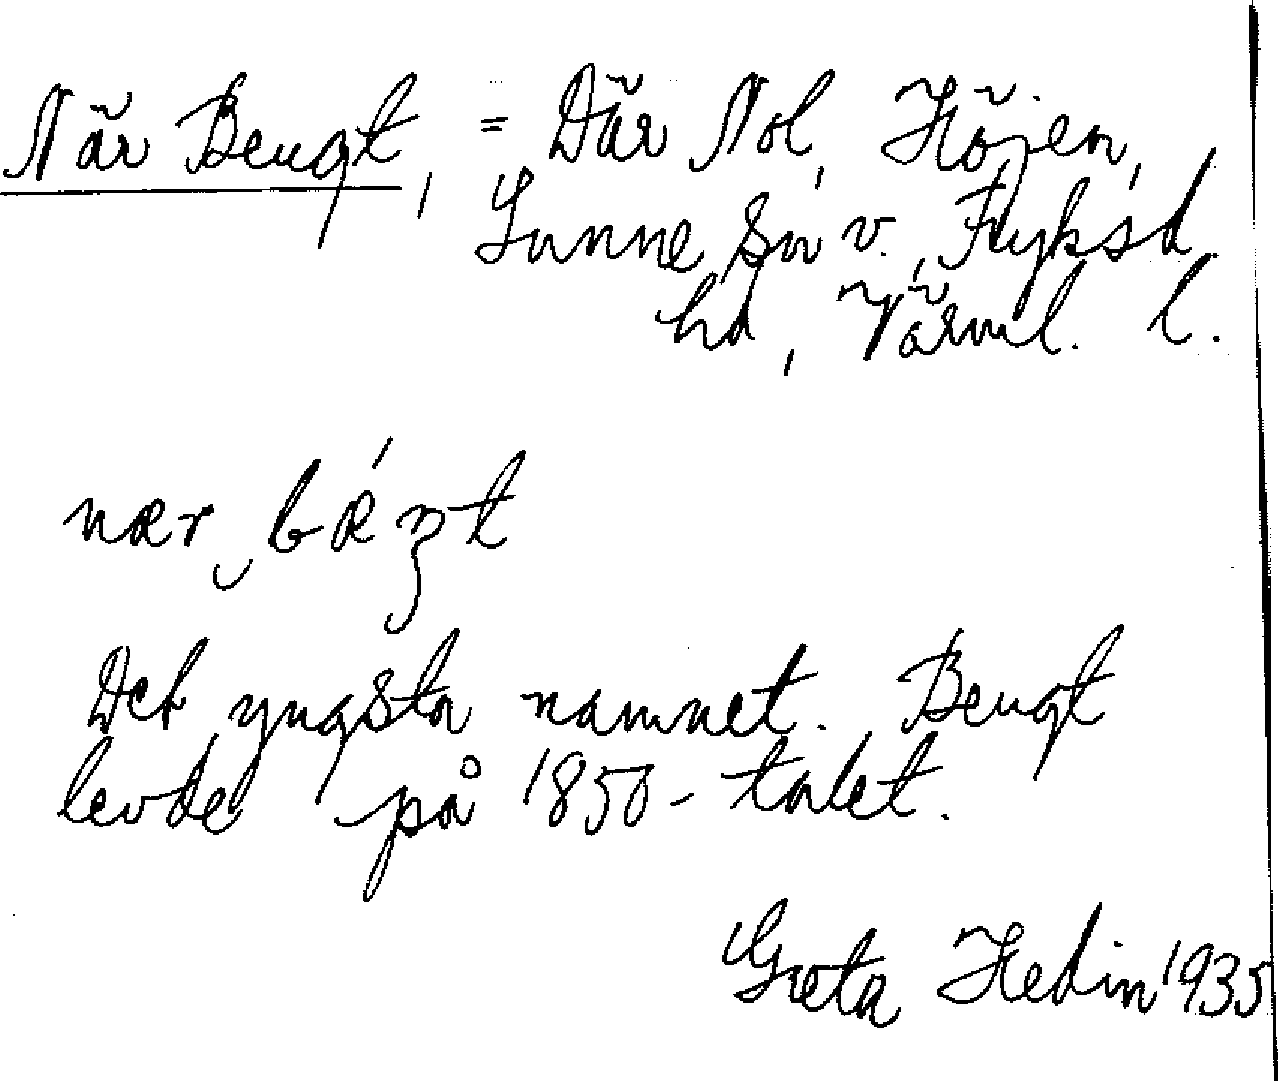 När Bengt, = Där Nol, Höjen,
Sunne sn v., Fryksd.
hd, Värml. l.
nær‿bǽŋt
Det yngsta namnet. Bengt
levde på 1850-talet.
Greta Hedin 1935